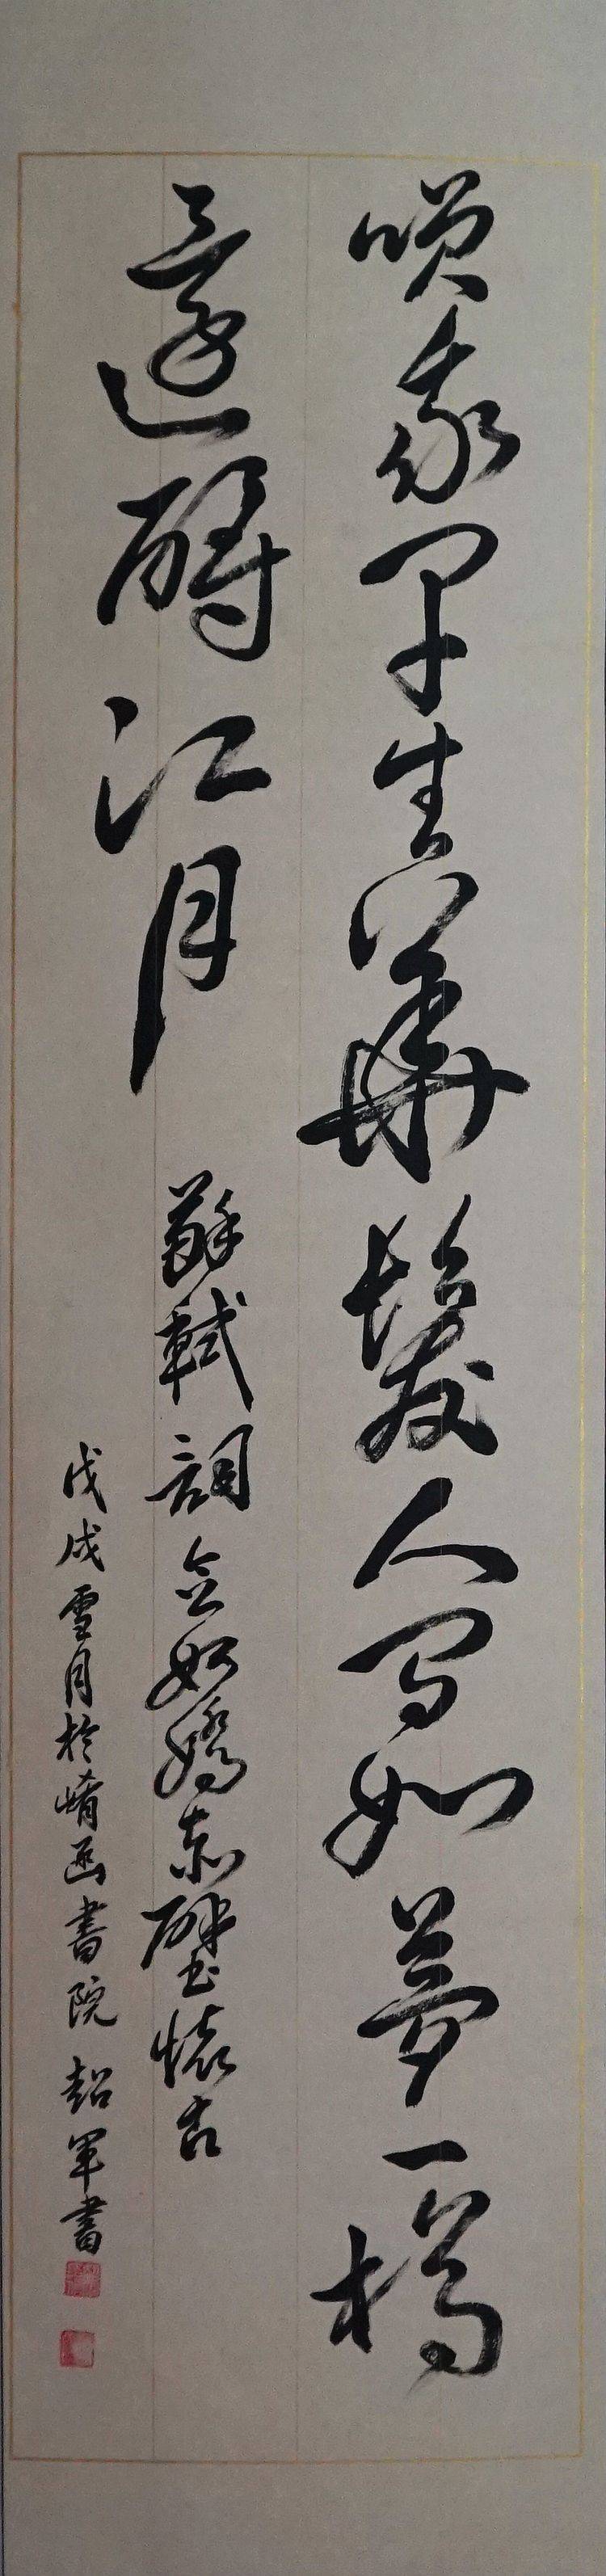 咲我早生華髮人间如夢一樽
還酹江月 蘇軾詞念奴嬌赤壁懷古
戊戌雪月於崤函書院 超軍書